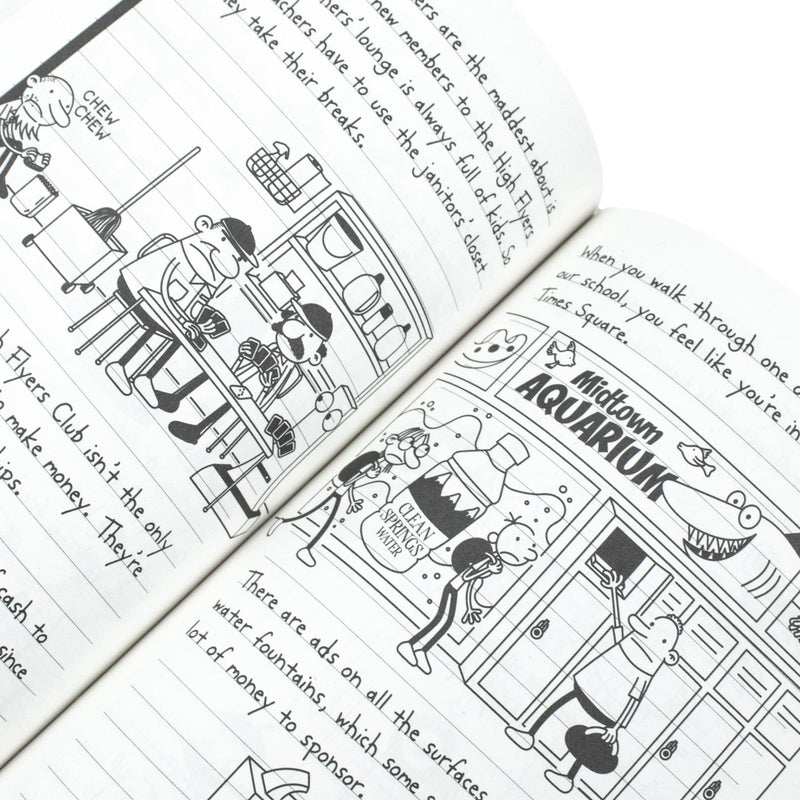 ers are the maddest about is
new members to the High Flyers
hers' lounge is always full of kids. So
achers have to use the janitors' closet
ey take their breaks.
CHEW
CHEW
h Flyers Club isn't the only
to make money. They're
ips.
cash to
since
When you walk through one o
our school, you feel like you're in
Times Square.
Midtown
AQUARIUM
CLEAN
SPRINGS
WATER
There are ads on all the surfaces
water fountains, which some
lot of money to sponsor.